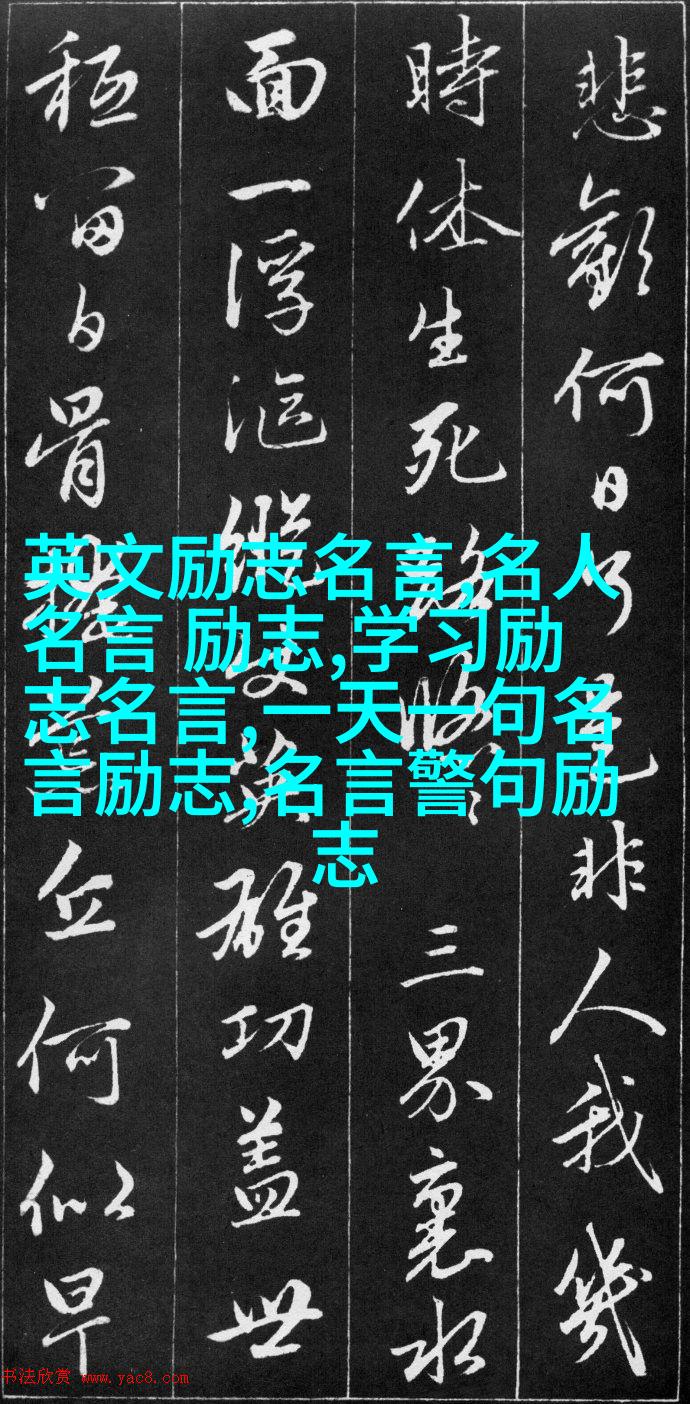 悲歡何日了是非人我幾
時休生死路悠悠三界裏水
面一浮漚縱使英雄功蓋世
秪留白骨丘何似早
英文励志名言,名人
名言 励志,学习励
志名言,一天一句名
言励志,名言警句励
志
书法欣赏 www.yac8.com